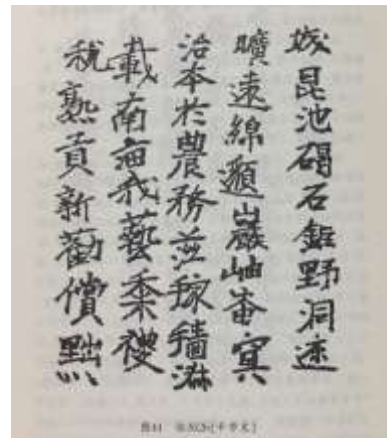 城昆池碣石鉅野洞庭
曠遠綿邈巖岫杳冥
治本於農務茲稼穡俶
載南畝我藝黍稷
税熟貢新勸賞黜
千字文